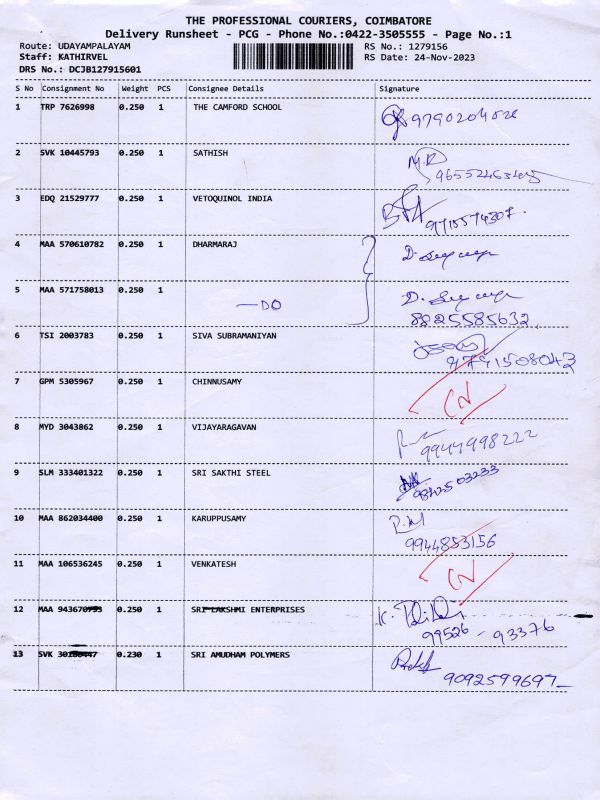 THE PROFESSIONAL COURIERS, COIMBATORE
Delivery Runsheet - PCG - Phone No.:0422-3505555 - Page No.:1
Route: UDAYAMPALAYAM RS No.: 1279156
Staff: KATHIRVEL RS Date: 24-Nov-2023
DRS No.: DCJB127915601
S No Consignment No Weight PCS Consignee Details Signature
1 TRP 7626998 0.250 1 THE CAMFORD SCHOOL
2 SVK 10445793 0.250 1 SATHISH M.R
3 EDQ 21529777 0.250 1 VETOQUINOL INDIA
9715574307.
4 MAA 570610782 0.250 1 DHARMARAJ
5 MAA 571758013 0.250 1
—DO
8825585632
6 TSI 2003783 0.250 1 SIVA SUBRAMANIYAN
9791508043
7 GPM 5305967 0.250 1 CHINNUSAMY
CN
8 MYD 3043862 0.250 1 VIJAYARAGAVAN
9944998222
9 SLM 333401322 0.250 1 SRI SAKTHI STEEL
9842503233
10 MAA 862034400 0.250 1 KARUPPUSAMY
9944853156
11 MAA 106536245 0.250 1 VENKATESH
CN
12 MAA 943670793 0.250 1 SRI LAKSHMI ENTERPRISES
99526 - 93376
13 SVK 0.230 1 SRI AMUDHAM POLYMERS
9092599697